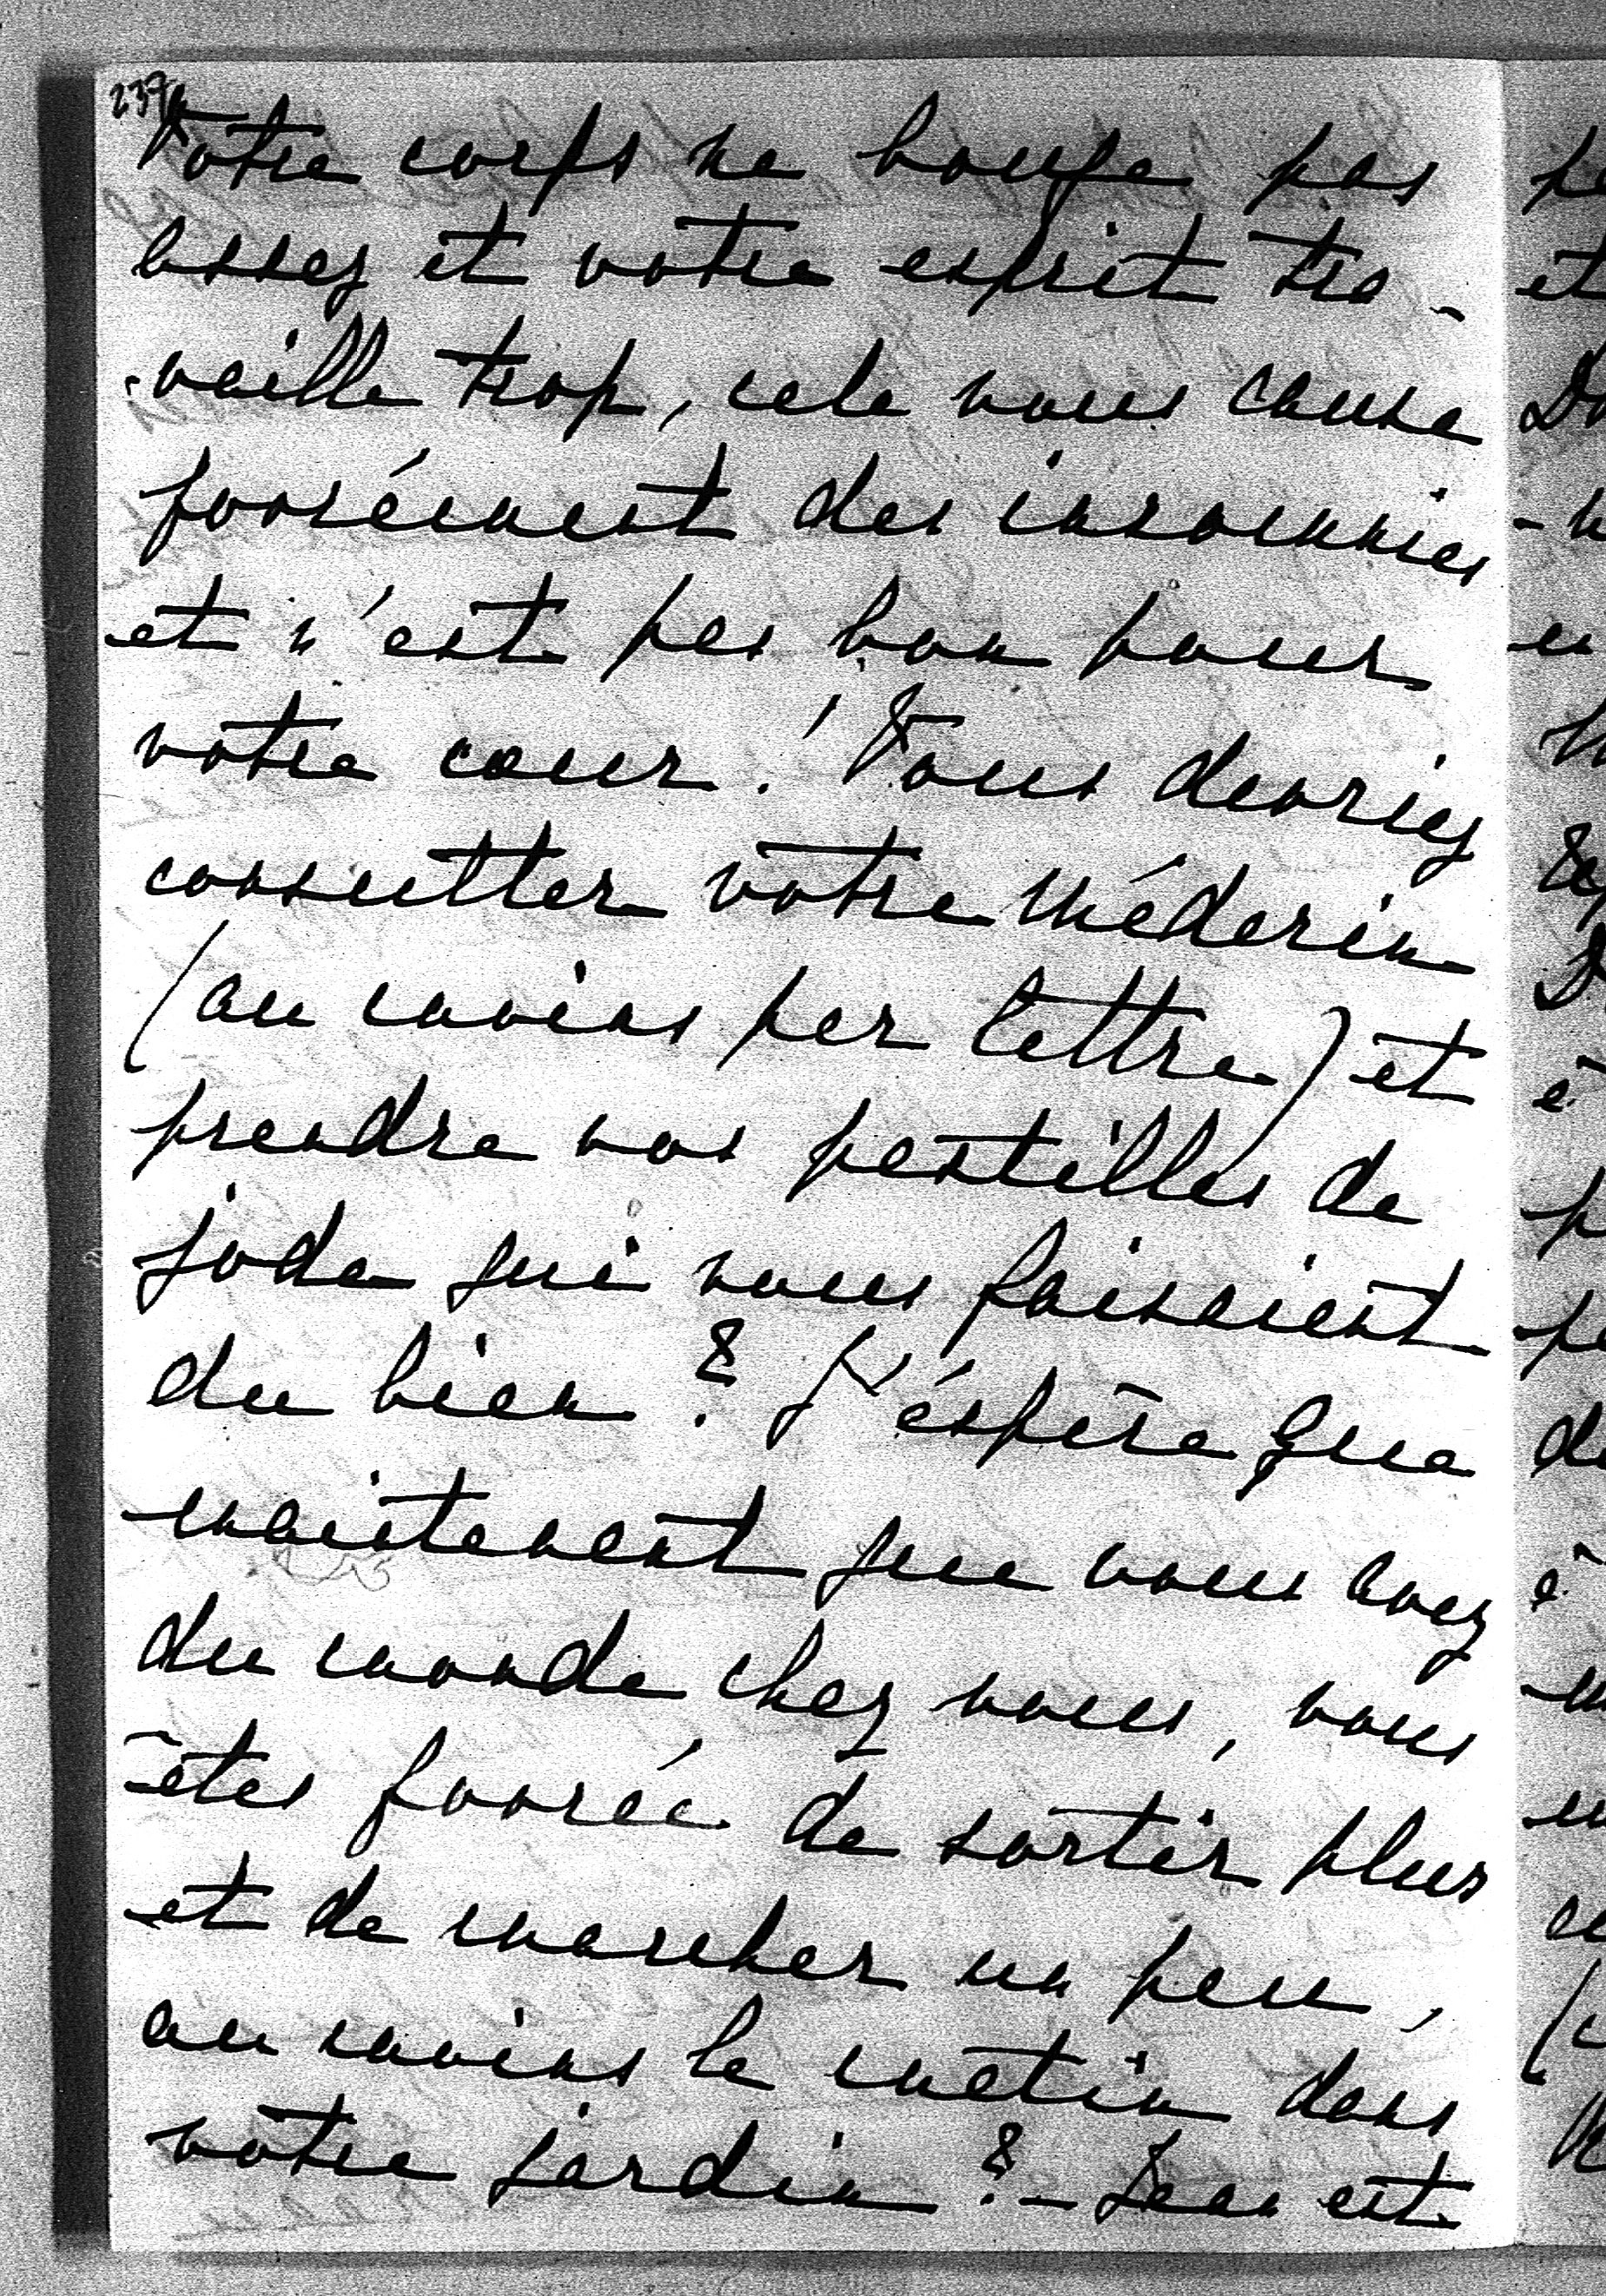 237
Votre corps ne bouge pas
assez et votre esprit tra-
-vaille trop, cela vous cause
forcément des insomnies
et n'est pas bon pour
votre cœur! Vous devriez
consulter votre Médecin
(au moins par lettre) et
prendre vos pastilles de
jode qui vous faisaient
du bien? J'éspère que
maintenant que vous avez
du monde chez vous, vous
êtes forcée de sortir plus
et de marcher un peu,
au moins le matin dans
votre jardin?- Jean est